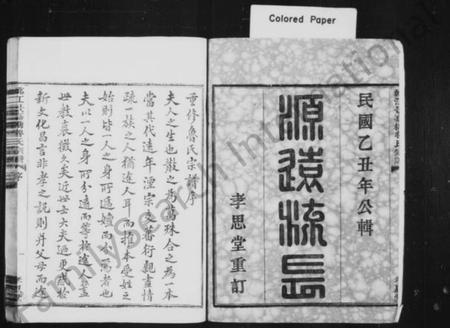 Colored Paper
民國乙丑年公輯
源遠流長
孝思堂重訂
重修魯氏宗譜序
夫人之生也散之為萬殊合之為一本
當其代遠年湮宗支蕃衍親盡情
疏一族之人猶途人耳而推本受姓之
始則皆一人之身所遞嬗而
夫以一人之身所分遠而
世教衰微久矣近世士大夫
新文化昌言非孝之說則并父母而
FamilySearch International